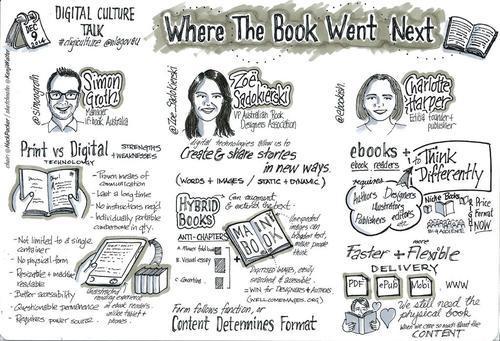 DEC
9
2014
DIGITAL CULTURE
TALK
#digiculture @slqgov8u
Where The Book Went Next
@simongroth
Simon
Groth
Manager
if:book Australia
@Zoe_Sadokierski
Zoë
Sadokierski
VP Australian Book
Designers Association
@ebookish
Charlotte
Harper
Editia founder +
publisher
Print vs Digital
TECHNOLOGY
STRENGTHS
+ WEAKNESSES
- Proven means of
communication
- Last a long time
- No instructions req'd
- Individually portable
- Not limited to a single
container
- No physical form
- Resizable + machine
readable
- Better accessibility
- Questionable permanence
- Requires power source
Uninterrupted
reading experience
in ebook readers
unlike tablet +
phones
digital technologies allow us to
Create & share stories
in new ways.
(WORDS + IMAGES / STATIC + DYNAMIC)
HYBRID
BOOKS
Can augment
& extend the text
ANTI-CHAPTERS
B. Visual essay
MAIN
BOOK
Unexpected
images can
broaden text,
make people
think
Digitised images, easily
searched & accessible
= WIN for Designers + Authors
(WELLCOMEIMAGES.ORG)
Form follows function, or
Content Determines Format
ebooks +
ebook readers
requires
Authors Designers
Illustrators
Publishers editors
etc
to Think
Differently
Niche Books
Price
Format
NOW
Faster + more Flexible
DELIVERY
PDF ePub Mobi WWW
We still need the
physical book
when we care so much about the
CONTENT